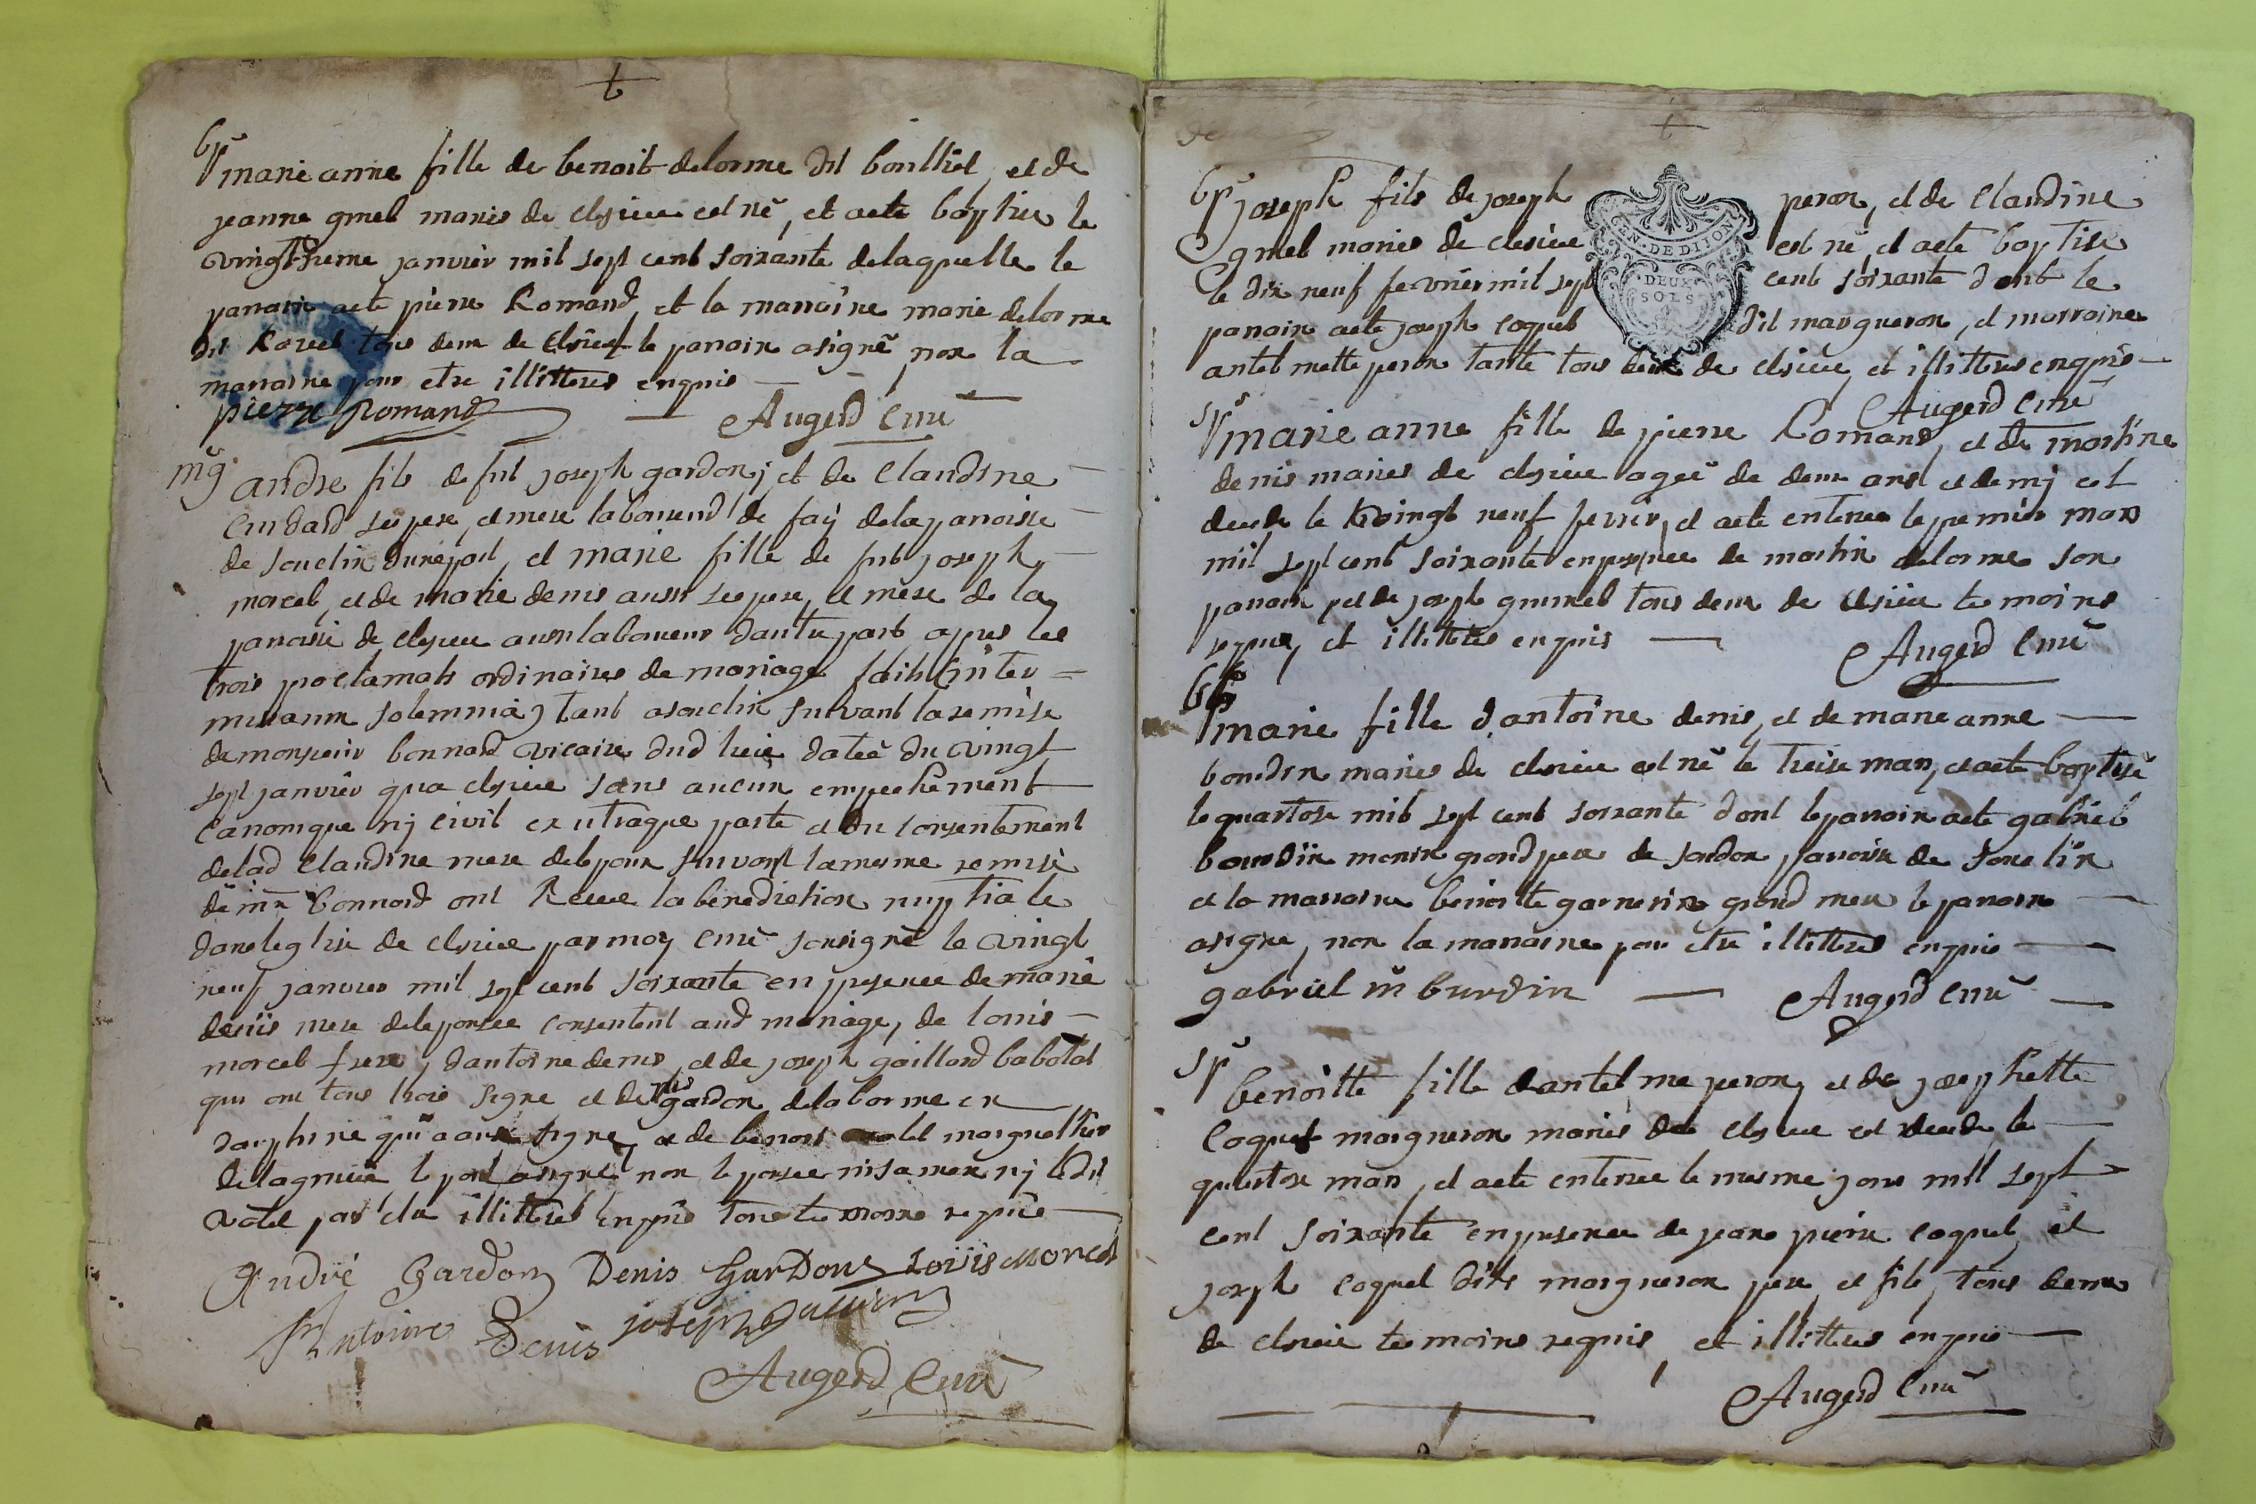 bp marie anne fille de benoit delorme dit boulliet, et de
jeanne gmel mariés de clesieu est né, et aeté baptisee le
vingt janvier mil sept cent soixante de laquelle le
parrain aeté pierre Romand, et la marraine marie delorme
dit tous deux de clesieu le parrain asigné, non la
marraine pour etre illitteres enquis
pierre Romand Augerd Curé
mg andre fils de fut joseph gardon, et de Claudine
Cuidard ses pere, et mere laboureurs de fay de la paroisse
de souclin d'une part, et marie fille de fut joseph
morcel, et de marie denis aussi ses pere, et mere de la
paroisse de clesieu aussi laboureurs d'autre part apres les
trois proclamats ordinaires de mariage faits inter
missarum solemnia, tant asouclin suivant la remise
de monsieur bonnard vicaire dud lieu datée du vingt
sept janvier qua clesieu sans aucun empechement
Canonique nj civil ex utraque parte et du consentement
de lad Claudine mere de lepoux suivant la mesme remise
de mr bonnard ont Receue la benediction nuptiale
dans leglise de clesieu par moy curé sousigné le vingt
neuf janvier mil sept cent soixante en presence de marie
denis mere de lepousee consentent aud mariage, de louis
morcel frere, d'antoine denis, et de joseph gaillard babolat
qui ont tous trois signé et de denis gardon de la borme en
dauphine qui a aussi signé, et de benoit marguellier
de lagnieu lepoux asigné non lepousee ni sa mere nj ledit
pour etre illitteres enquis tous temoins requis
André Gardon Denis Gardon Loüis Morcel
Antoine Denis joseph gaillard
Augerd Curé
bp joseph fils de joseph peron, et de Claudine
gmel mariés de clesieu est né, et aeté baptisé
le dix neuf fevrier mil sept cent soixante dont le
parrain aeté joseph coquet dit margueron, et marraine
antelmette peron tante tous deux de clesieu, et illitteres enquis
Augerd Curé
GEN. DE DIJON
DEUX
SOLS
sp marie anne fille de pierre Romand, et de martine
denis mariés de clesieu ageé de deux ans et demj est
decedé le vingt neuf fevrier, et aeté enterree le premier mars
mil sept cent soixante en presence de martin delorme son
parrain, et de joseph gmmel tous deux de clesieu temoins
requis, et illitteres enquis
Augerd Curé
bp marie fille d'antoine denis, et de marie anne
bourdin mariés de clesieu est né le treise mars, et aeté baptisé
le quartose mil sept cent soixante dont le parrain aeté gabriel
bourdin monin grand pere de soudon paroisse de souclin
et la marraine benoitte garnerin grand mere le parrain
asigné, non la marraine pour etre illitteres enquis
gabriel m burdin Augerd Curé
sp benoitte fille d'antelme peron, et de josephette
Coquet margueron mariés de clesieu est decedé le
quartose mars, et aeté enterree le mesme jour mil sept
cent soixante en presence de jean pierre coquet, et
joseph coquet dits margueron pere, et fils, tous deux
de clesieu temoins requis, et illitteres enquis
Augerd Curé